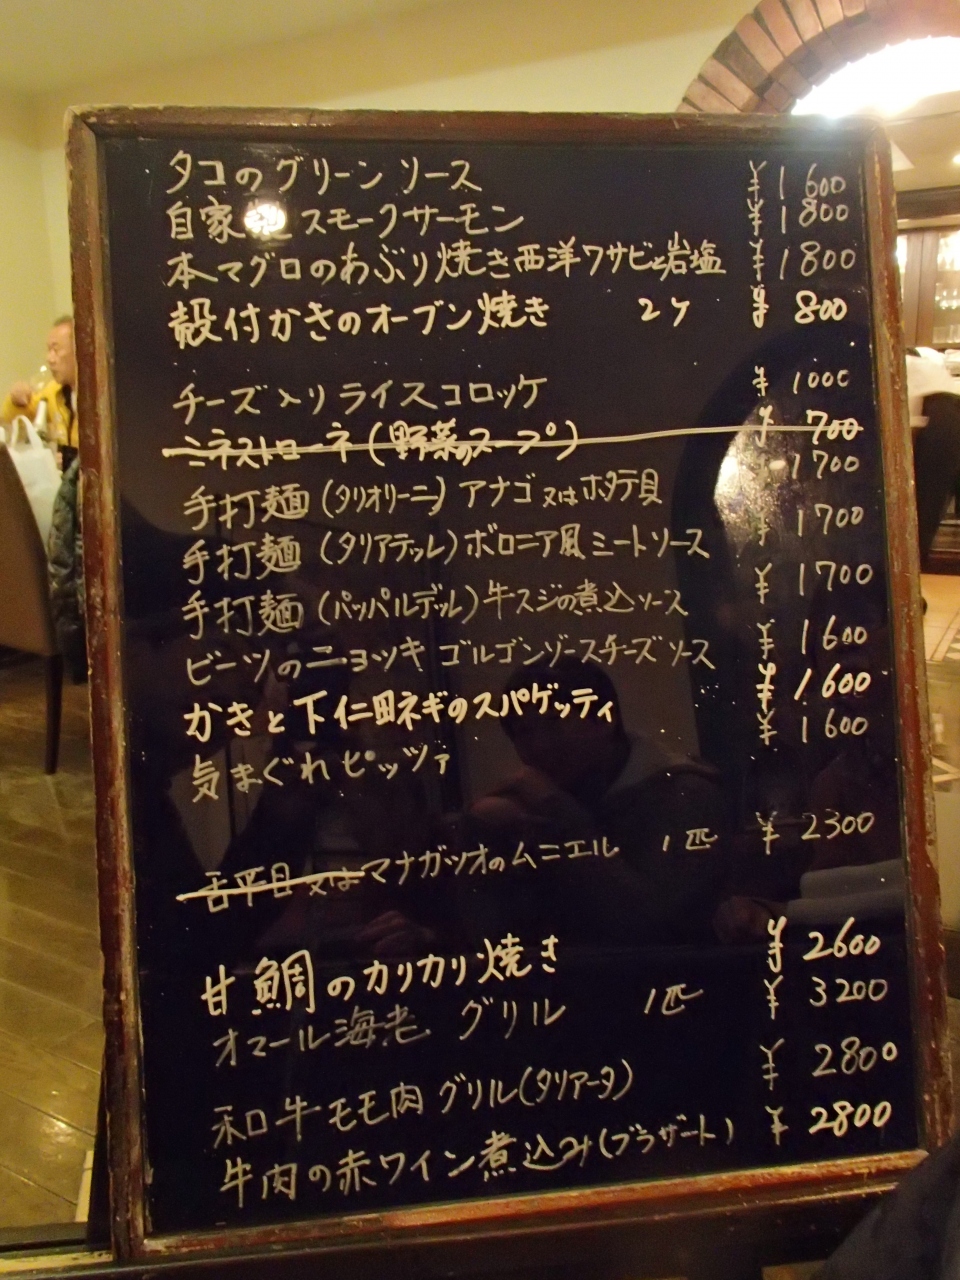 タコのグリーンソース ¥1600
自家 スモークサーモン ¥1800
本マグロのあぶり焼き西洋ワサビと岩塩 ¥1800
殻付かきのオーブン焼き 2ケ ¥800
チーズ入りライスコロッケ ¥1000
ミネストローネ(野菜のスープ) ¥700
手打麺(タリオリーニ)アナゴ又はホタテ貝 ¥1700
手打麺(タリアテッレ)ボロニア風ミートソース ¥1700
手打麺(パッパルデッレ)牛スジの煮込ソース ¥1700
ビーツのニョッキ ゴルゴンゾースチーズソース ¥1600
かきと下仁田ネギのスパゲッティ ¥1600
気まぐれピッツァ ¥1600
舌平目又はマナガツオのムニエル 1匹 ¥2300
甘鯛のカリカリ焼き ¥2600
オマール海老 グリル 1匹 ¥3200
和牛モモ肉グリル(タリアータ) ¥2800
牛肉の赤ワイン煮込み(ブラザート) ¥2800